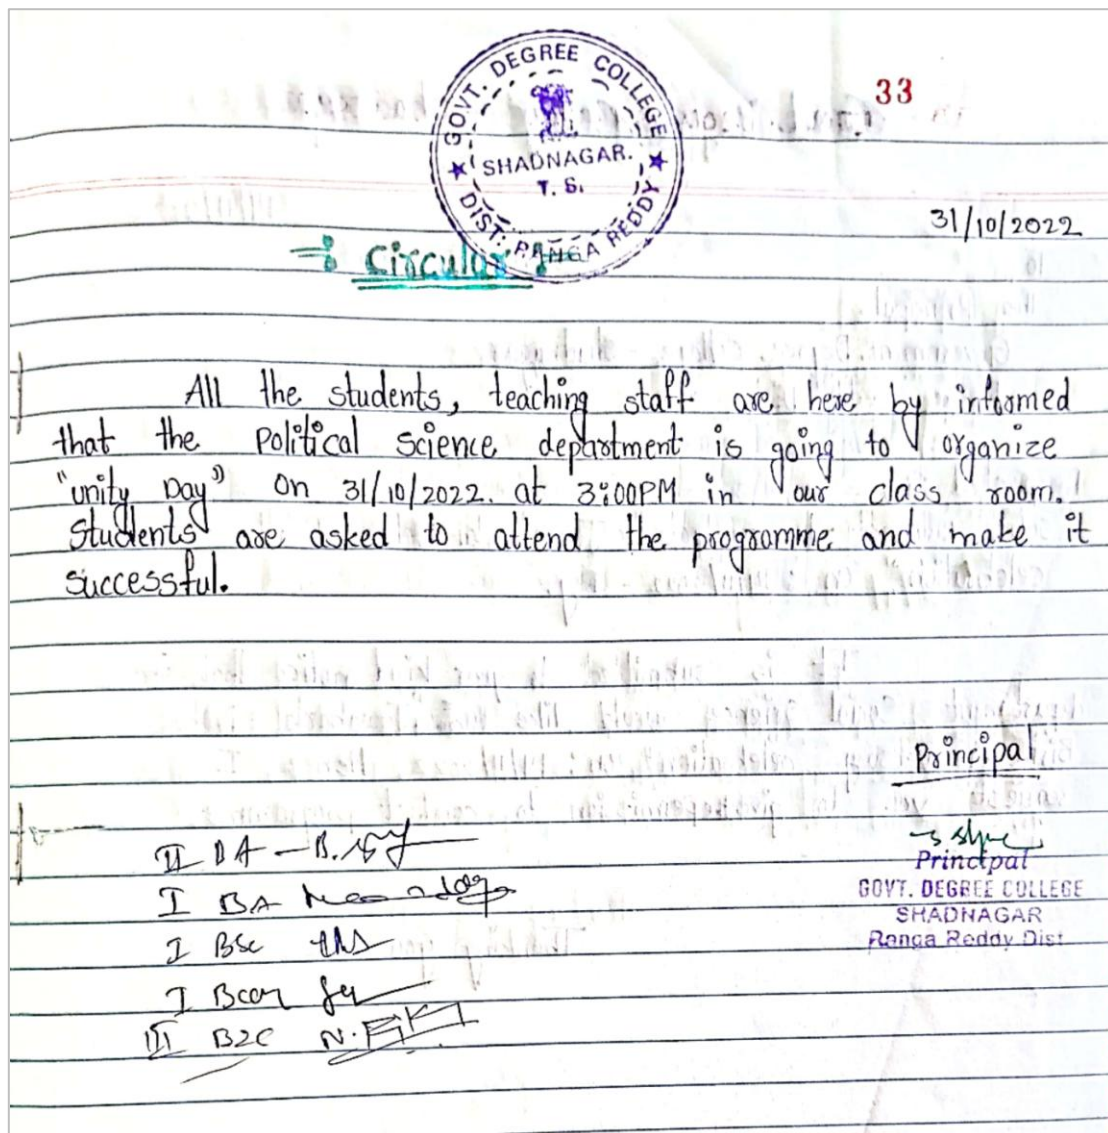 33
GOVT. DEGREE COLLEGE
SHADNAGAR.
T. S.
DIST: RANGA REDDY
31/10/2022
Circular
All the students, teaching staff are here by informed
that the political science department is going to organize
"unity Day" on 31/10/2022. at 3:00PM in our class room.
Students are asked to attend the programme and make it
successful.
principal
Principal
GOVT. DEGREE COLLEGE
SHADNAGAR
Ranga Reddy Dist
II BA - B.
I BA
I BSc
I Bcom
III BZC N.